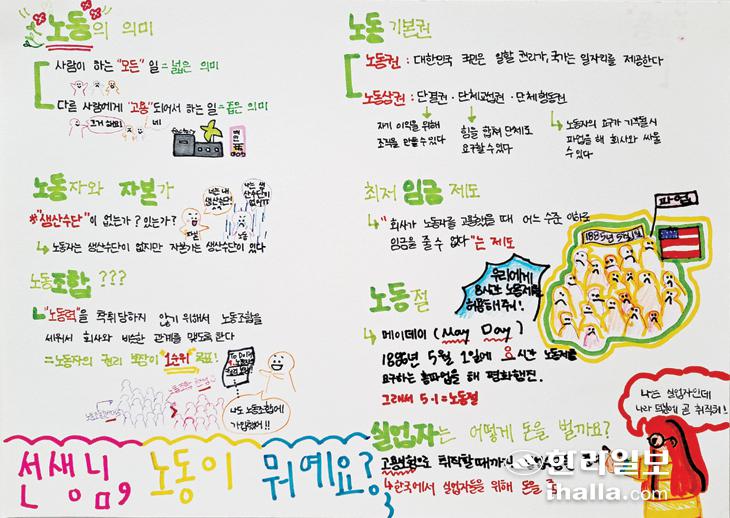 노동의 의미
사람이 하는 "모든" 일 = 넓은 의미
다른 사람에게 "고용"되어서 하는 일 = 좁은 의미
네
노동자와 자본가
"생산수단"이 없는가? 있는가?
↳ 노동자는 생산수단이 없지만 자본가는 생산수단이 있다
자본
노동
노동조합 ???
"노동력"을 착취 당하지 않기 위해서 노동조합을
세워서 회사와 비슷한 관계를 맺도록 한다
= 노동자의 권리 보장이 "1순위" 목표!
To Do List
나도 노동조합에
가입해야!!
선생님, 노동이 뭐예요?
노동 기본권
노동권 : 대한민국 국민은 일할 권리가, 국가는 일자리를 제공한다
노동삼권 : 단결권 · 단체교섭권 · 단체행동권
자기 이익을 위해
조직을 만들 수 있다
힘을 합쳐 단체로
요구할 수 있다
↳ 노동자의 요구가 거절될 시
파업을 해 회사와 싸울
수 있다
최저 임금 제도
↳ "회사가 노동자를 고용했을 때 어느 수준 이하로
임금을 줄 수 없다"는 제도
파업
1886년 5월 1일
우리에게
8시간 노동제를
허용해줘!
노동절
↳ 메이데이 (May Day)
1886년 5월 1일에 8시간 노동제를
요구하는 총파업을 해 평화행진.
그래서 5.1 = 노동절
나는 실업자인데
나라 덕분에 곧 취직해!
실업자는 어떻게 돈을 벌까요?
고용보험으로 취직할 때까지
↳ 한국에서 실업자들을 위해 돈을
한라일보
ihalla.com